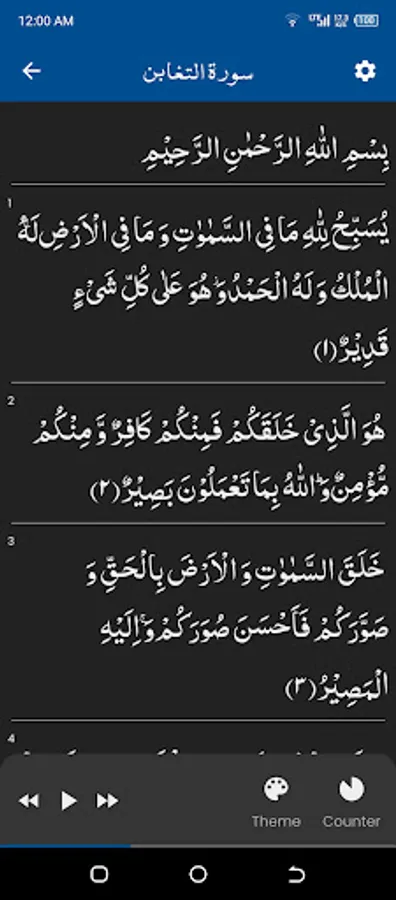 12:00 AM
سورة التغابن
بِسْمِ اللهِ الرَّحْمٰنِ الرَّحِيْمِ
1
يُسَبِّحُ لِلّٰهِ مَا فِى السَّمٰوٰتِ وَ مَا فِى الْاَرْضِ لَهُ
الْمُلْكُ وَ لَهُ الْحَمْدُ٘ وَ هُوَ عَلٰى كُلِّ شَیْءٍ
قَدِیْرٌ(۱)
2
هُوَ الَّذِیْ خَلَقَكُمْ فَمِنْكُمْ كَافِرٌ وَّ مِنْكُمْ
مُّؤْمِنٌؕ وَ اللّٰهُ بِمَا تَعْمَلُوْنَ بَصِیْرٌ(۲)
3
خَلَقَ السَّمٰوٰتِ وَ الْاَرْضَ بِالْحَقِّ وَ
صَوَّرَكُمْ فَاَحْسَنَ صُوَرَكُمْۚ وَ اِلَیْهِ
الْمَصِیْرُ(۳)
4
Theme Counter